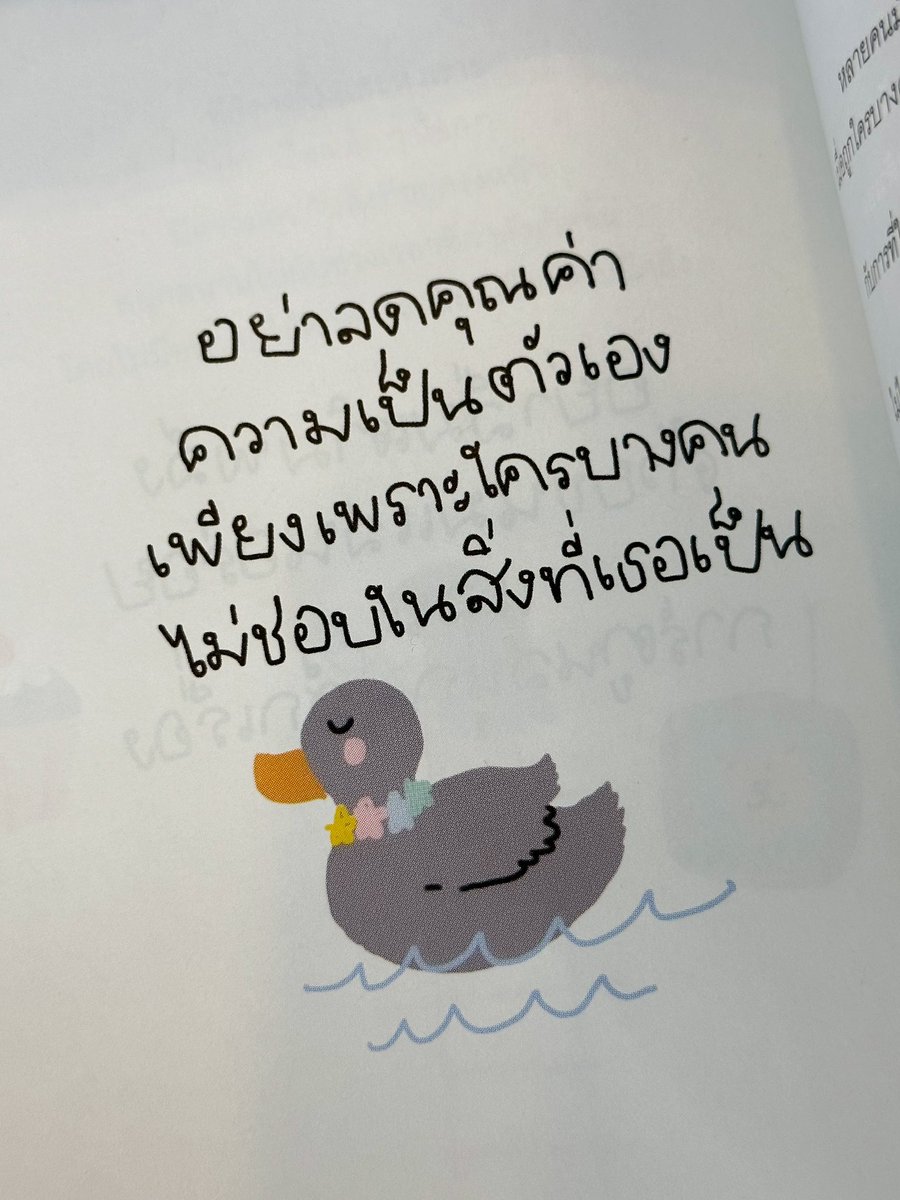 อย่าลดคุณค่า
ความเป็นตัวเอง
เพียงเพราะใครบางคน
ไม่ชอบในสิ่งที่เธอเป็น
หลายคน